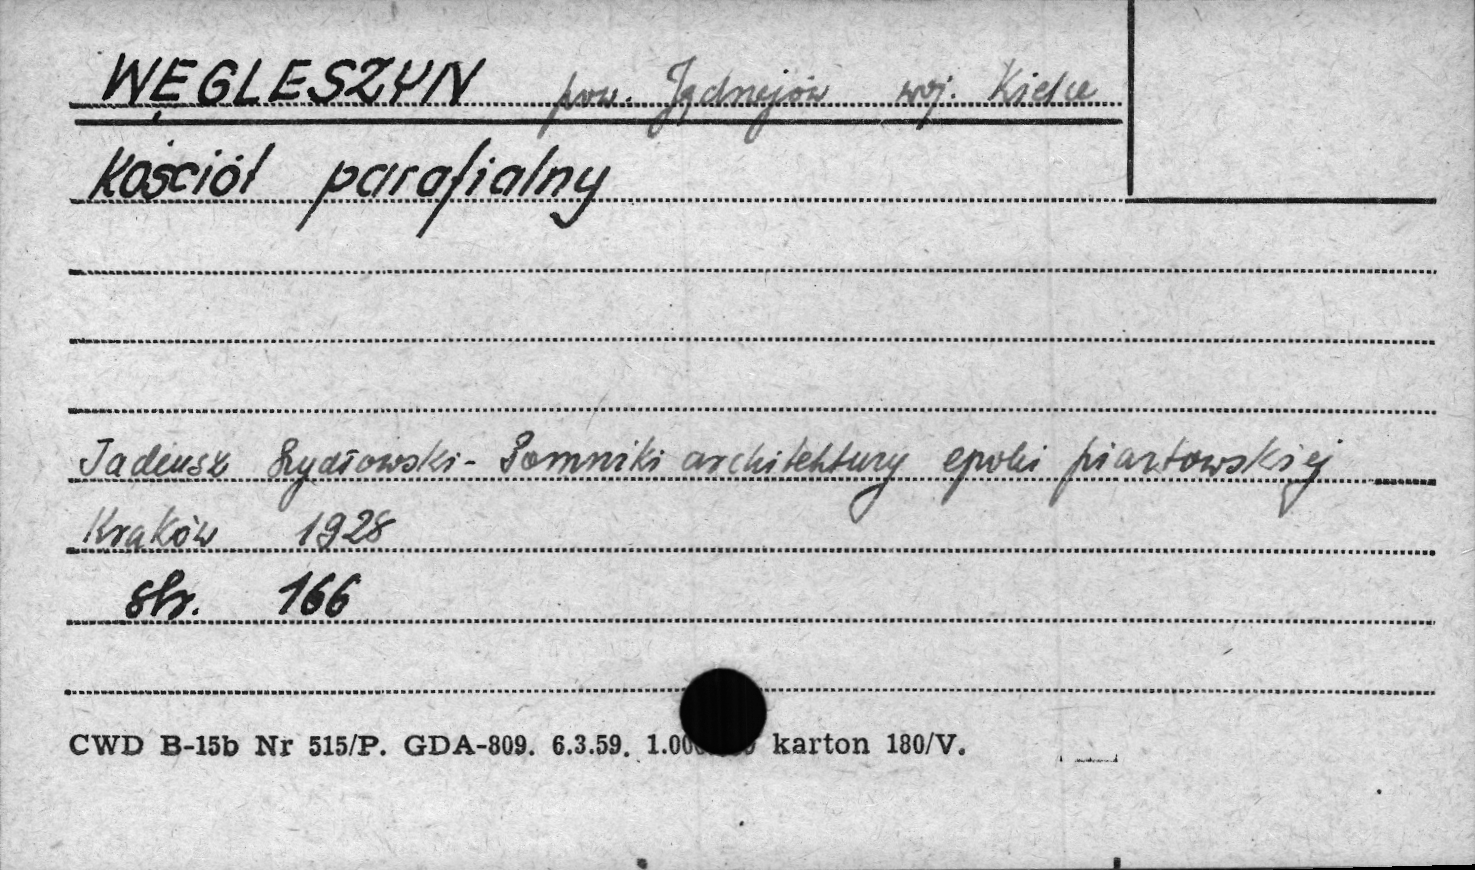 WĘGLESZYN pow. Jędrzejów woj. Kielce
Kościół parafialny
Tadeusz Szydłowski - Pomniki architektury epoki piastowskiej
Kraków 1928
str. 166
CWD B-15b Nr 515/P. GDA-809. 6.3.59. karton 180/V.